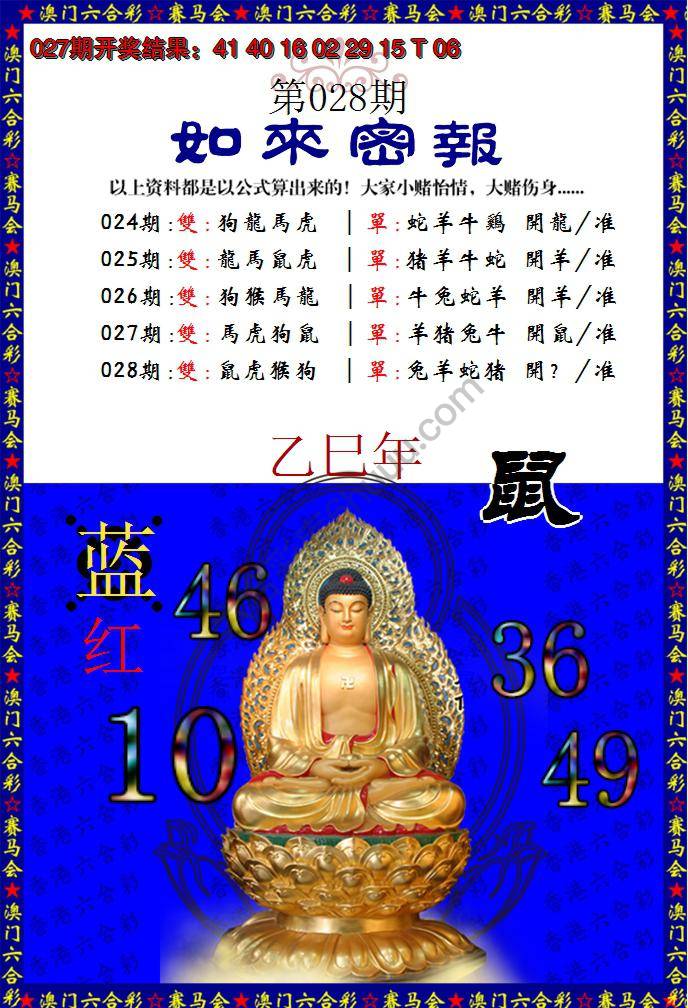 ★澳门六合彩☆赛马会★澳门六合彩☆赛马会★澳门六合彩☆赛马会★
027期开奖结果：41 40 16 02 29 15 T 06
第028期
如來密報
以上资料都是以公式算出来的！大家小赌怡情，大赌伤身......
024期:雙:狗龍馬虎 | 單:蛇羊牛鷄 開龍/准
025期:雙:龍馬鼠虎 | 單:猪羊牛蛇 開羊/准
026期:雙:狗猴馬龍 | 單:牛兔蛇羊 開羊/准
027期:雙:馬虎狗鼠 | 單:羊猪兔牛 開鼠/准
028期:雙:鼠虎猴狗 | 單:兔羊蛇猪 開？/准
乙巳年
鼠
蓝
红
46
36
10
49
卍
香港六合彩
★澳门六合彩☆赛马会★澳门六合彩☆赛马会★澳门六合彩☆赛马会★